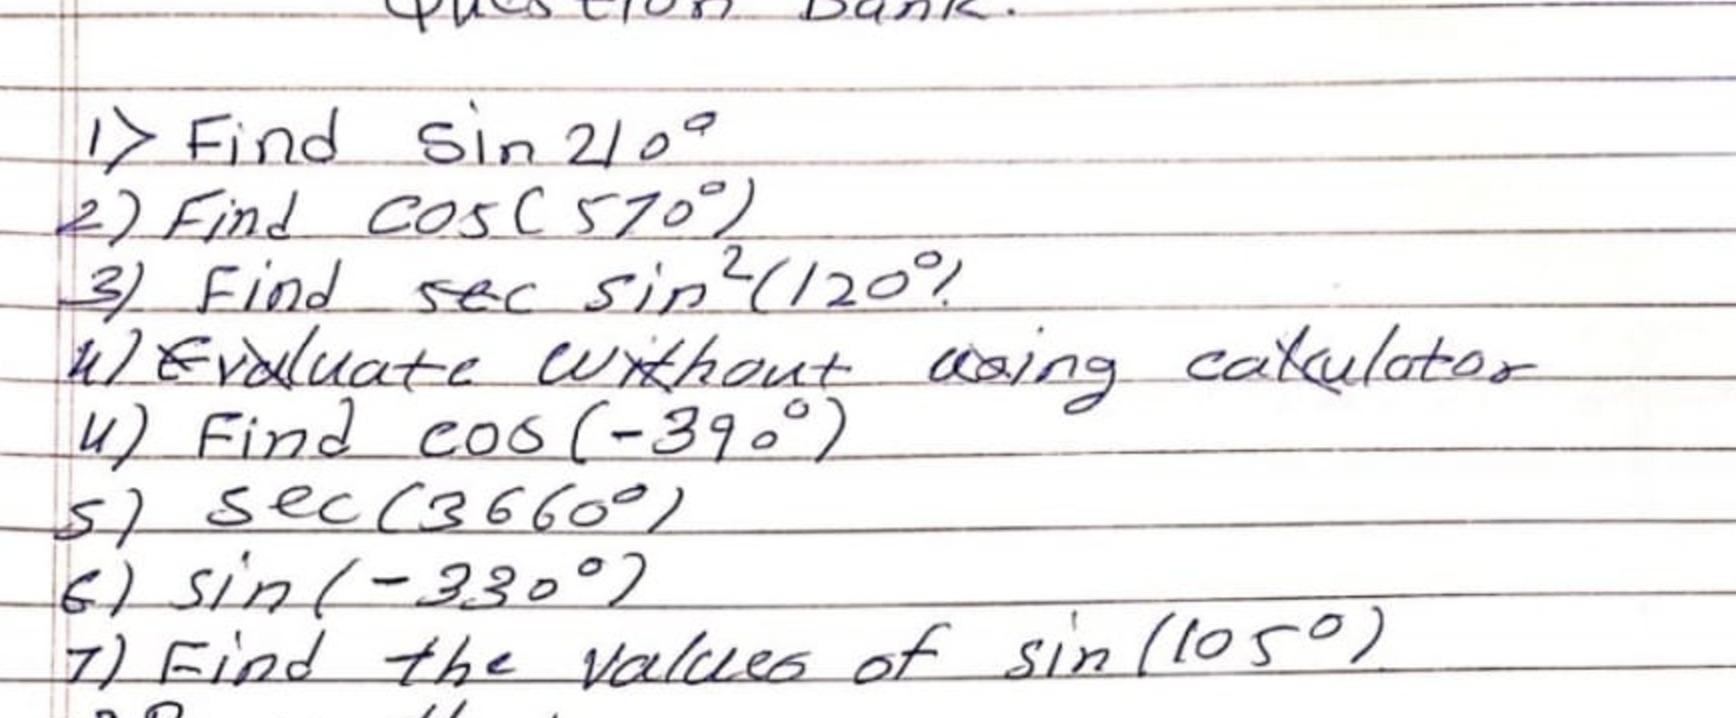 Question Bank.
1) Find Sin 210°
2) Find cos(570°)
3) Find sec sin²(120°)
4) Evaluate without using calculator
4) Find cos(-390°)
5) sec(3660°)
6) sin(-330°)
7) Find the values of sin(105°)